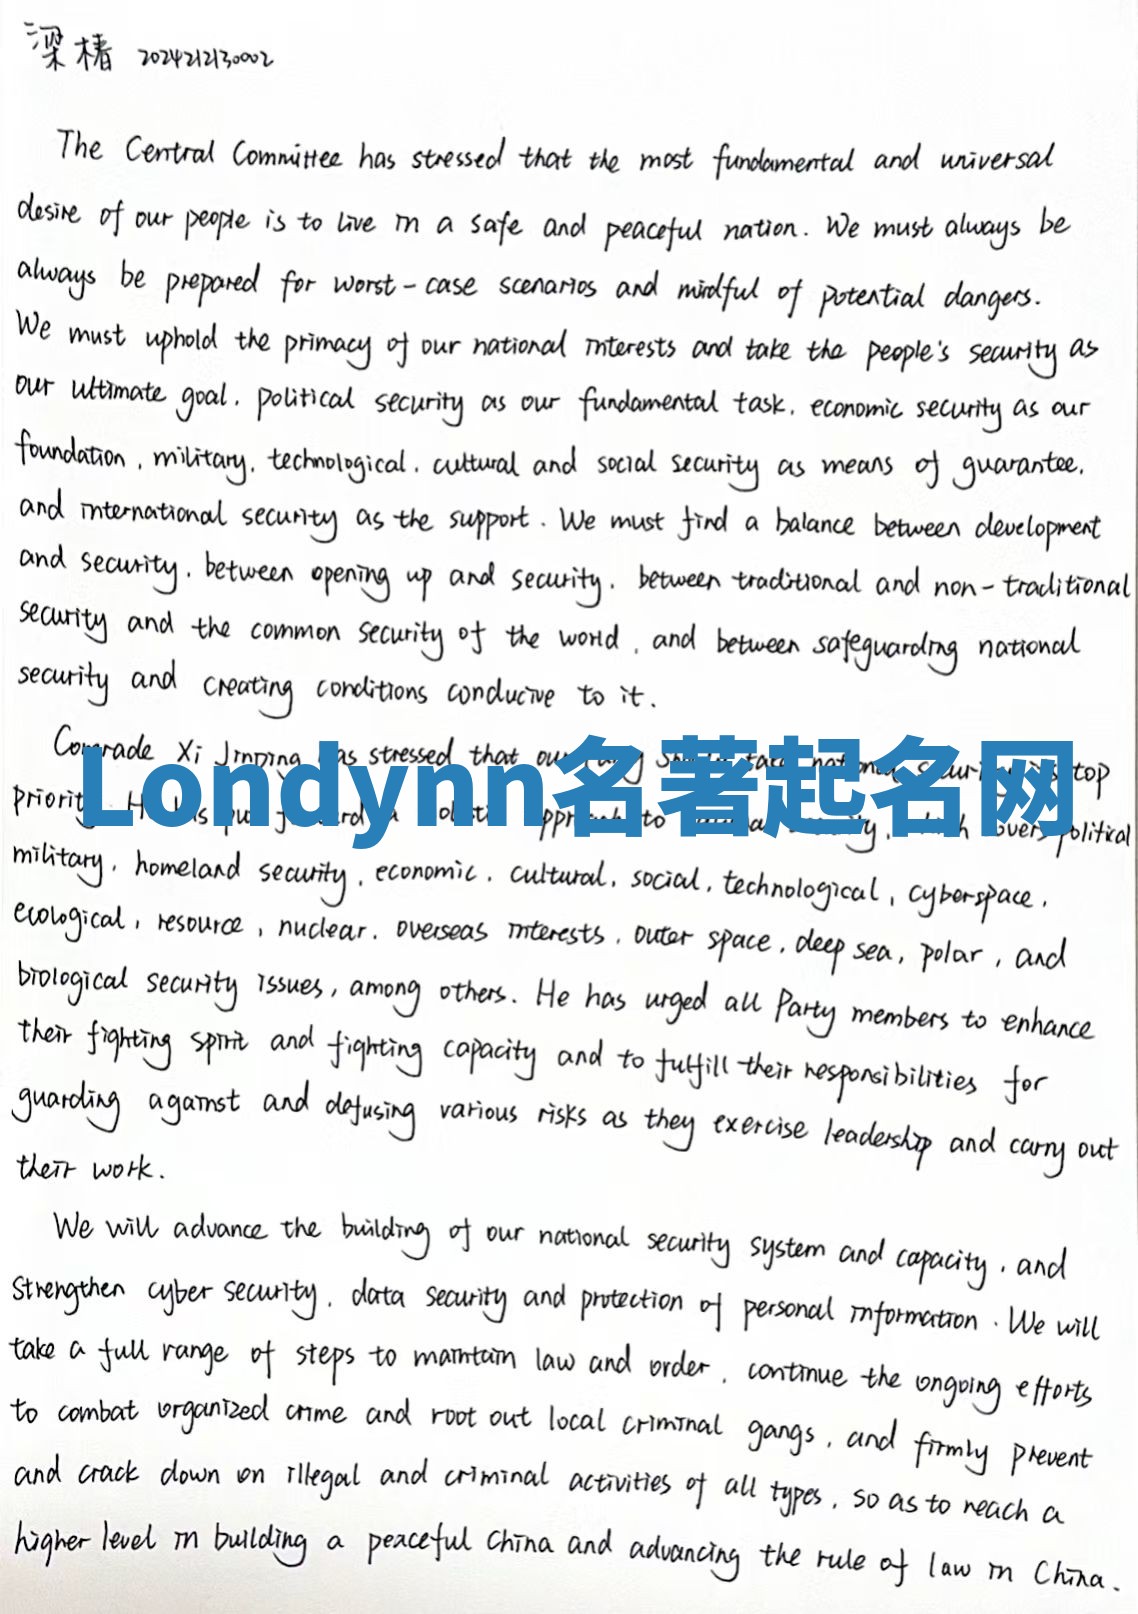 梁椿 2024212130002
The Central Committee has stressed that the most fundamental and universal
desire of our people is to live in a safe and peaceful nation. We must always be
always be prepared for worst-case scenarios and mindful of potential dangers.
We must uphold the primacy of our national interests and take the people's security as
our ultimate goal, political security as our fundamental task, economic security as our
foundation, military, technological, cultural and social security as means of guarantee,
and international security as the support. We must find a balance between development
and security, between opening up and security, between traditional and non-traditional
security and the common security of the world, and between safeguarding national
security and creating conditions conducive to it.
Comrade Xi Jinping has stressed that our take top
Londynn名著起名网
priority to political
military, homeland security, economic, cultural, social, technological, cyberspace,
ecological, resource, nuclear, overseas interests, outer space, deep sea, polar, and
biological security issues, among others. He has urged all Party members to enhance
their fighting spirit and fighting capacity and to fulfill their responsibilities for
guarding against and defusing various risks as they exercise leadership and carry out
their work.
We will advance the building of our national security system and capacity, and
strengthen cyber security, data security and protection of personal information. We will
take a full range of steps to maintain law and order, continue the ongoing efforts
to combat organized crime and root out local criminal gangs, and firmly prevent
and crack down on illegal and criminal activities of all types, so as to reach a
higher level in building a peaceful China and advancing the rule of law in China.